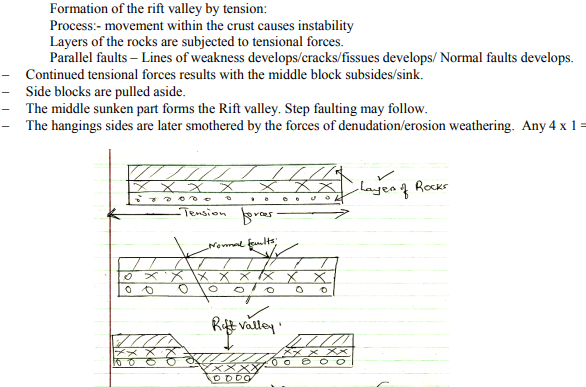 Formation of the rift valley by tension:
Process:- movement within the crust causes instability
Layers of the rocks are subjected to tensional forces.
Parallel faults – Lines of weakness develops/cracks/fissues develops/ Normal faults develops.
– Continued tensional forces results with the middle block subsides/sink.
– Side blocks are pulled aside.
– The middle sunken part forms the Rift valley. Step faulting may follow.
– The hangings sides are later smothered by the forces of denudation/erosion weathering. Any 4 x 1 =
Layers of Rocks
Tension forces
Normal faults
Rift valley